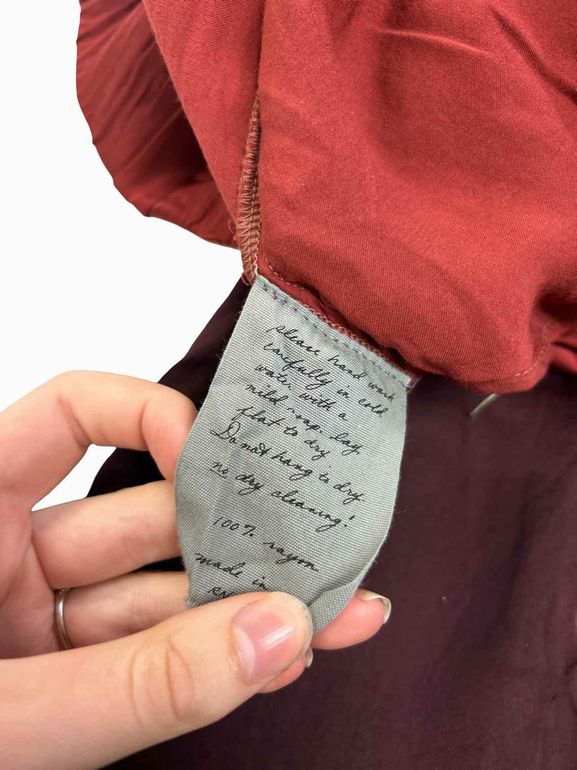 please hand wash
carefully in cold
water with a
mild soap. lay
flat to dry
Do not hang to dry
no dry cleaning!
100% rayon
made in